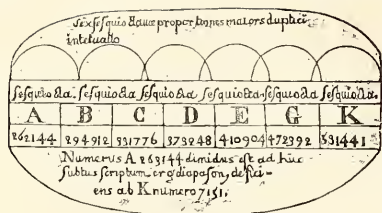 sex sesquio&auæ proportiones maiors duplici
inteuallo
sesquio&a. sesquio&a. sesquio&a sesquio&a. sesquio&a sesquio&a.
A B C D E G K
262144 294912 331776 373248 410904 472392 531441
Numerus A 263144 dimidus est ad hũc
subtus scriptum ergo diapason, defici-
ens ab K numero 7151.